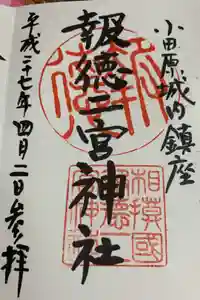 小田原城内鎮座
報徳二宮神社
平成二十七年四月二日参拝
相模國
報徳二
宮神社